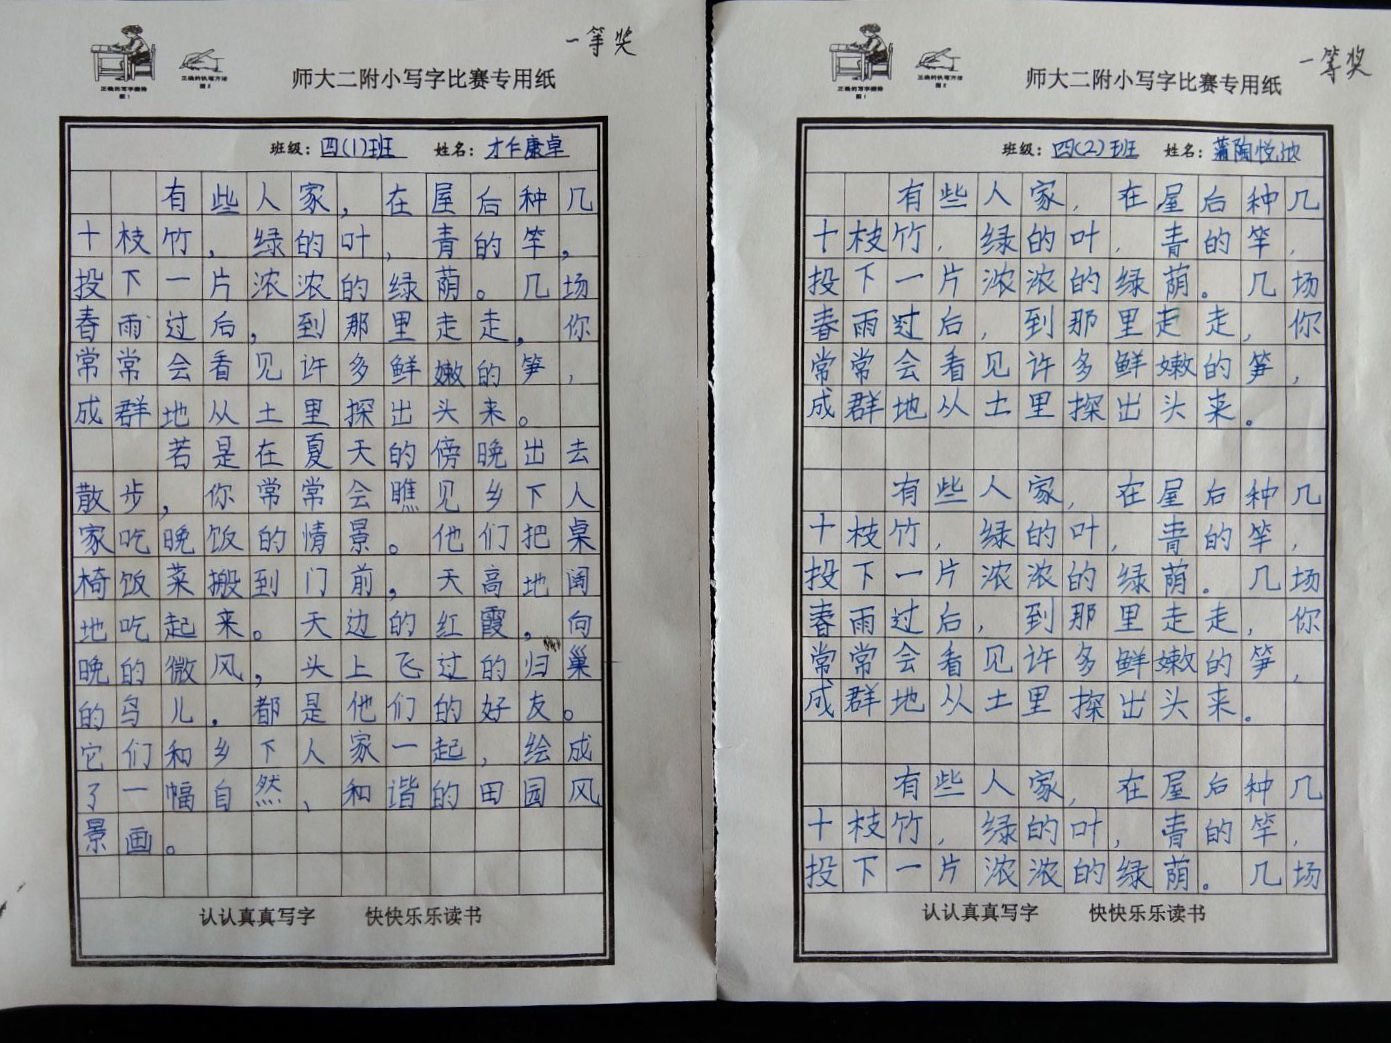 一等奖
正确的写字姿势
图1
正确的执笔方法
图2
师大二附小写字比赛专用纸
班级：四(1)班 姓名：才乍康卓
有些人家，在屋后种几
十枝竹，绿的叶，青的竿，
投下一片浓浓的绿荫。几场
春雨过后，到那里走走，你
常常会看见许多鲜嫩的笋，
成群地从土里探出头来。
若是在夏天的傍晚出去
散步，你常常会瞧见乡下人
家吃晚饭的情景。他们把桌
椅饭菜搬到门前，天高地阔
地吃起来。天边的红霞，向
晚的微风，头上飞过的归巢
的鸟儿，都是他们的好友。
它们和乡下人家一起，绘成
了一幅自然、和谐的田园风
景画。
认认真真写字 快快乐乐读书
一等奖
正确的写字姿势
图1
正确的执笔方法
图2
师大二附小写字比赛专用纸
班级：四(2)班 姓名：陶悦
有些人家，在屋后种几
十枝竹，绿的叶，青的竿，
投下一片浓浓的绿荫。几场
春雨过后，到那里走走，你
常常会看见许多鲜嫩的笋，
成群地从土里探出头来。
有些人家，在屋后种几
十枝竹，绿的叶，青的竿，
投下一片浓浓的绿荫。几场
春雨过后，到那里走走，你
常常会看见许多鲜嫩的笋，
成群地从土里探出头来。
有些人家，在屋后种几
十枝竹，绿的叶，青的竿，
投下一片浓浓的绿荫。几场
认认真真写字 快快乐乐读书